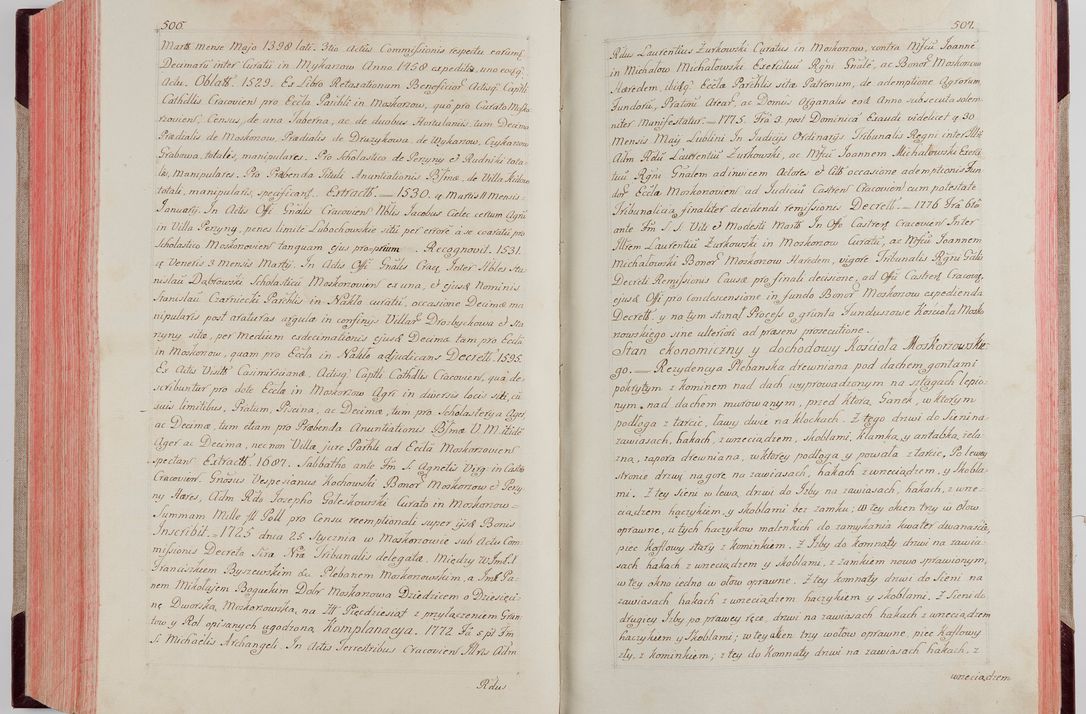 506.
Martii mense Majo 1398 lati. 3tio Actus Commissionis respectu earumq
Decimarū inter Curatū in Mykanow Anno 1458 expedita, uno eoq
Actu. Oblatt. 1529. Ex Libro Retaxationum Beneficior Actisq Captli
Cathdlis Cracovien pro Eccla Parchli in Moskorzow, quo pro Curato Mosko-
rzovien Census, de una Taberna, ac de duobus Hortulaniis, tum Decima
Prædialis de Moskorzow, Prædialis de Druzykowa, de Wykanow, Czykanow
Grabowa, totalis, manipulares. Pro Scholastico de Perzyny et Rudniki tota-
lis, manipulares. Pro Præbenda Tituli Anuntiationis Bmæ, de Villa
totali, manipularis specificant. Extractt. — 1530. a Martis 11 Mensis
Januarij. In Actis Offi Gnalis Cracovien Nblis Jacobus Cielec certum Agrū
in Villa Perzyny, penes limite Lubochowskie siti per errorē a se coaratū pro
Scholastico Moskorzovien tanquam ejus proprium. Recognovit. 1531.
a Veneris 3 mensis Martij. In Actis Offi Gnalis Cracq Inter Nbles Sta-
nislau Dąbrowski Scholasticū Moskorzovien ex una, et ejusq Nominis
Stanislau Czarniecki Parchlis in Nakło curatū, occasione Decimæ ma-
nipularis post araturas argulæ in confinijs Villar Drozbyckowa et Sta-
rzyny sitæ, per Medium exdecimationis ejusq Decimæ tam pro Eccla
in Moskorzow, quam pro Eccla in Nakło adjudicans Decrett. 1595.
Ex Actis Visitt Casimirscianæ, Actisq Captli Cathdlis Cracovien, quâ de-
scribuntur pro dote Eccla in Moskorzow Agri in diversis locis siti, cū
suis limitibus, Pratum, Piscina, ac Decimæ, tum pro Scholasterya Ager
ac Decima, tum etiam pro Præbenda Anuntiationis Bmæ V. M. itidē
Ager ac Decima, necnon Villæ jure Parchli ad Ecclā Moskorzovien
spectan Extractt. 1687. Sabbatho ante Fm S. Agnetis Virg in Castr
Cracovien. Gnosus Vespesianus Kochowski Bonor Moskorzow et Perzy-
ny Hæres, Adm Rdo Josepho Goleskowski Curato in Moskorzow
Summam Mille fll Poll pro Censu reemptionali super ijsq Bonis
Inscribit. 1725 dnia 25 Stycznia w Moskorzowie sub Actu Com-
missionis Decreto Sira Nra Tribunalis delegatæ. Między WJmX.
Franciszkiem Byszewskim &c Plebanem Moskorzowskim, a Jmć Pa-
nem Mikołajem Boguckim Dobr Moskorzowa Dziedzicem o Dziesięci-
nę Dworską, Moskorzowską, na Złt Pięcdziesiąt z przyłączeniem Grun-
tow y Rol opisanych ugodzoną Komplanacya. 1772 Fa 5 pst Fm
S. Michaelis Archangeli. In Actis Terrestribus Cracovien Illris Adm
Rdus
507.
Rdus Laurentius Zurkowski Curatus in Moskorzow, contra Mfcu Joannē
in Michałow Michałowski Exercituū Rgni Gnalē, ac Bonor Moskorzow
Hæredem, itidq Eccla Parchlis sitæ Patronum, de ademptione Agrorum
Fundorū, Pratorū Arear, ac Domus Organalis eoq Anno subsecuta solem-
niter Manifestatur. — 1775. Fra 3. post Dominicā Exaudi videlicet q 30
Mensis Maij Lublini In Judicijs Ordinarijs Tribunalis Regni inter Illr
Adm Rdū Laurentiū Zurkowski, ac Mfcū Joannem Michałowski Exerci-
tuū Rgni Gnalem ad invicem Actores et Citt occasione ademptionis Fun-
dor Eccla Moskorzovien ad Judiciū Castren Cracovien cum potestate
Tribunalicia finaliter decidendi remissionis Decrett. — 1776 Fra 6ta
ante Fm S. S. Viti et Modesti Martt In Offo Castrenq Cracovien Inter
Illrem Laurentiū Zurkowski in Moskorzow Curatū, ac Mfcū Joannem
Michałowski Bonor Moskorzow Hæredem, vigore Tribunalis Rgni Gnlis
Decreti Remissionis Causæ pro finali decisione, ad Offi Castren Cracovq
ejusq Offi pro condescensione in fundo Bonor Moskorzow expedienda
Decrett. y na tym stanął Process o grunta Funduszowe Kościoła Mosko-
rzowskiego sine ulteriori ad præsens prosecutione.
Stan ekonomiczny y dochodowy Kościoła Moskorzowskie-
go. — Rezydencya Plebanska drewniana pod dachem gontami
pokrytym z kominem nad dach wyprowadzonym na sztagach lepio-
nym, nad dachem murowanym, przed ktorą Ganek, w ktorym
podłoga z tarcic, ławy dwie na klockach. Z tego drzwi do Sieni na
zawiasach, hakach, z wrzeciądzem, skoblami, klamką y antabką żela-
zną, zapora drewniana, w ktorey podłoga y powała z tarcic, Po lewey
stronie drzwi na gorę na zawiasach, hakach z wrzeciądzem, y skobla-
mi. Z tey Sieni w lewą drzwi do Izby na zawiasach, hakach, z wrze-
ciądzem haczykiem y skoblami bez zamku; W tey okien trzy w ołow
oprawne, u tych haczykow malenkich do zamykania kwater dwanaście,
piec kaflowy stary z kominkiem. Z Izby do komnaty drzwi na zawia-
sach hakach z wrzeciądzem y skoblami, z zamkiem nowo sprawionym,
w tey okno iedno w ołow oprawne. Z tey komnaty drzwi do Sieni na
zawiasach hakach z wrzeciądzem haczykiem y skoblami. Z Sieni do
drugiey Izby po prawey ręce, drzwi na zawiasach hakach z wrzeciądzem
haczykiem y Skoblami; w tey okien trzy w ołow oprawne, piec kaflowy
zły, z kominkiem; z tey do Komnaty drzwi na zawiasach hakach, z
wrzeciądzem